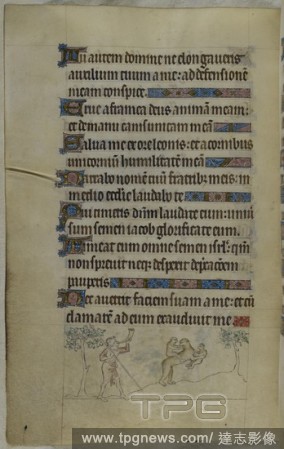 Tu autem domine ne elongaveris
auxilium tuum a me: ad defensionē
meam conspice.
Erue a framea deus animā meam:
et de manu canis unicam meā
Salva me ex ore leonis: et a cornibus
unicornium humilitatē meā
Narrabo nomen tuū fratribus meis: in
medio ecclīe laudabo te
Qui timetis dn̄m laudate eum: univ̄
sum semen iacob glorificate eum.
Timeat eum omne semen isrl: qm̄
non sprevit neqꝫ despexit dep̄cacōem
pauperis
Nec avertit faciem suam a me: et cū
clamarē ad eum exaudivit me
TPG
www.tpgnews.com/達志影像